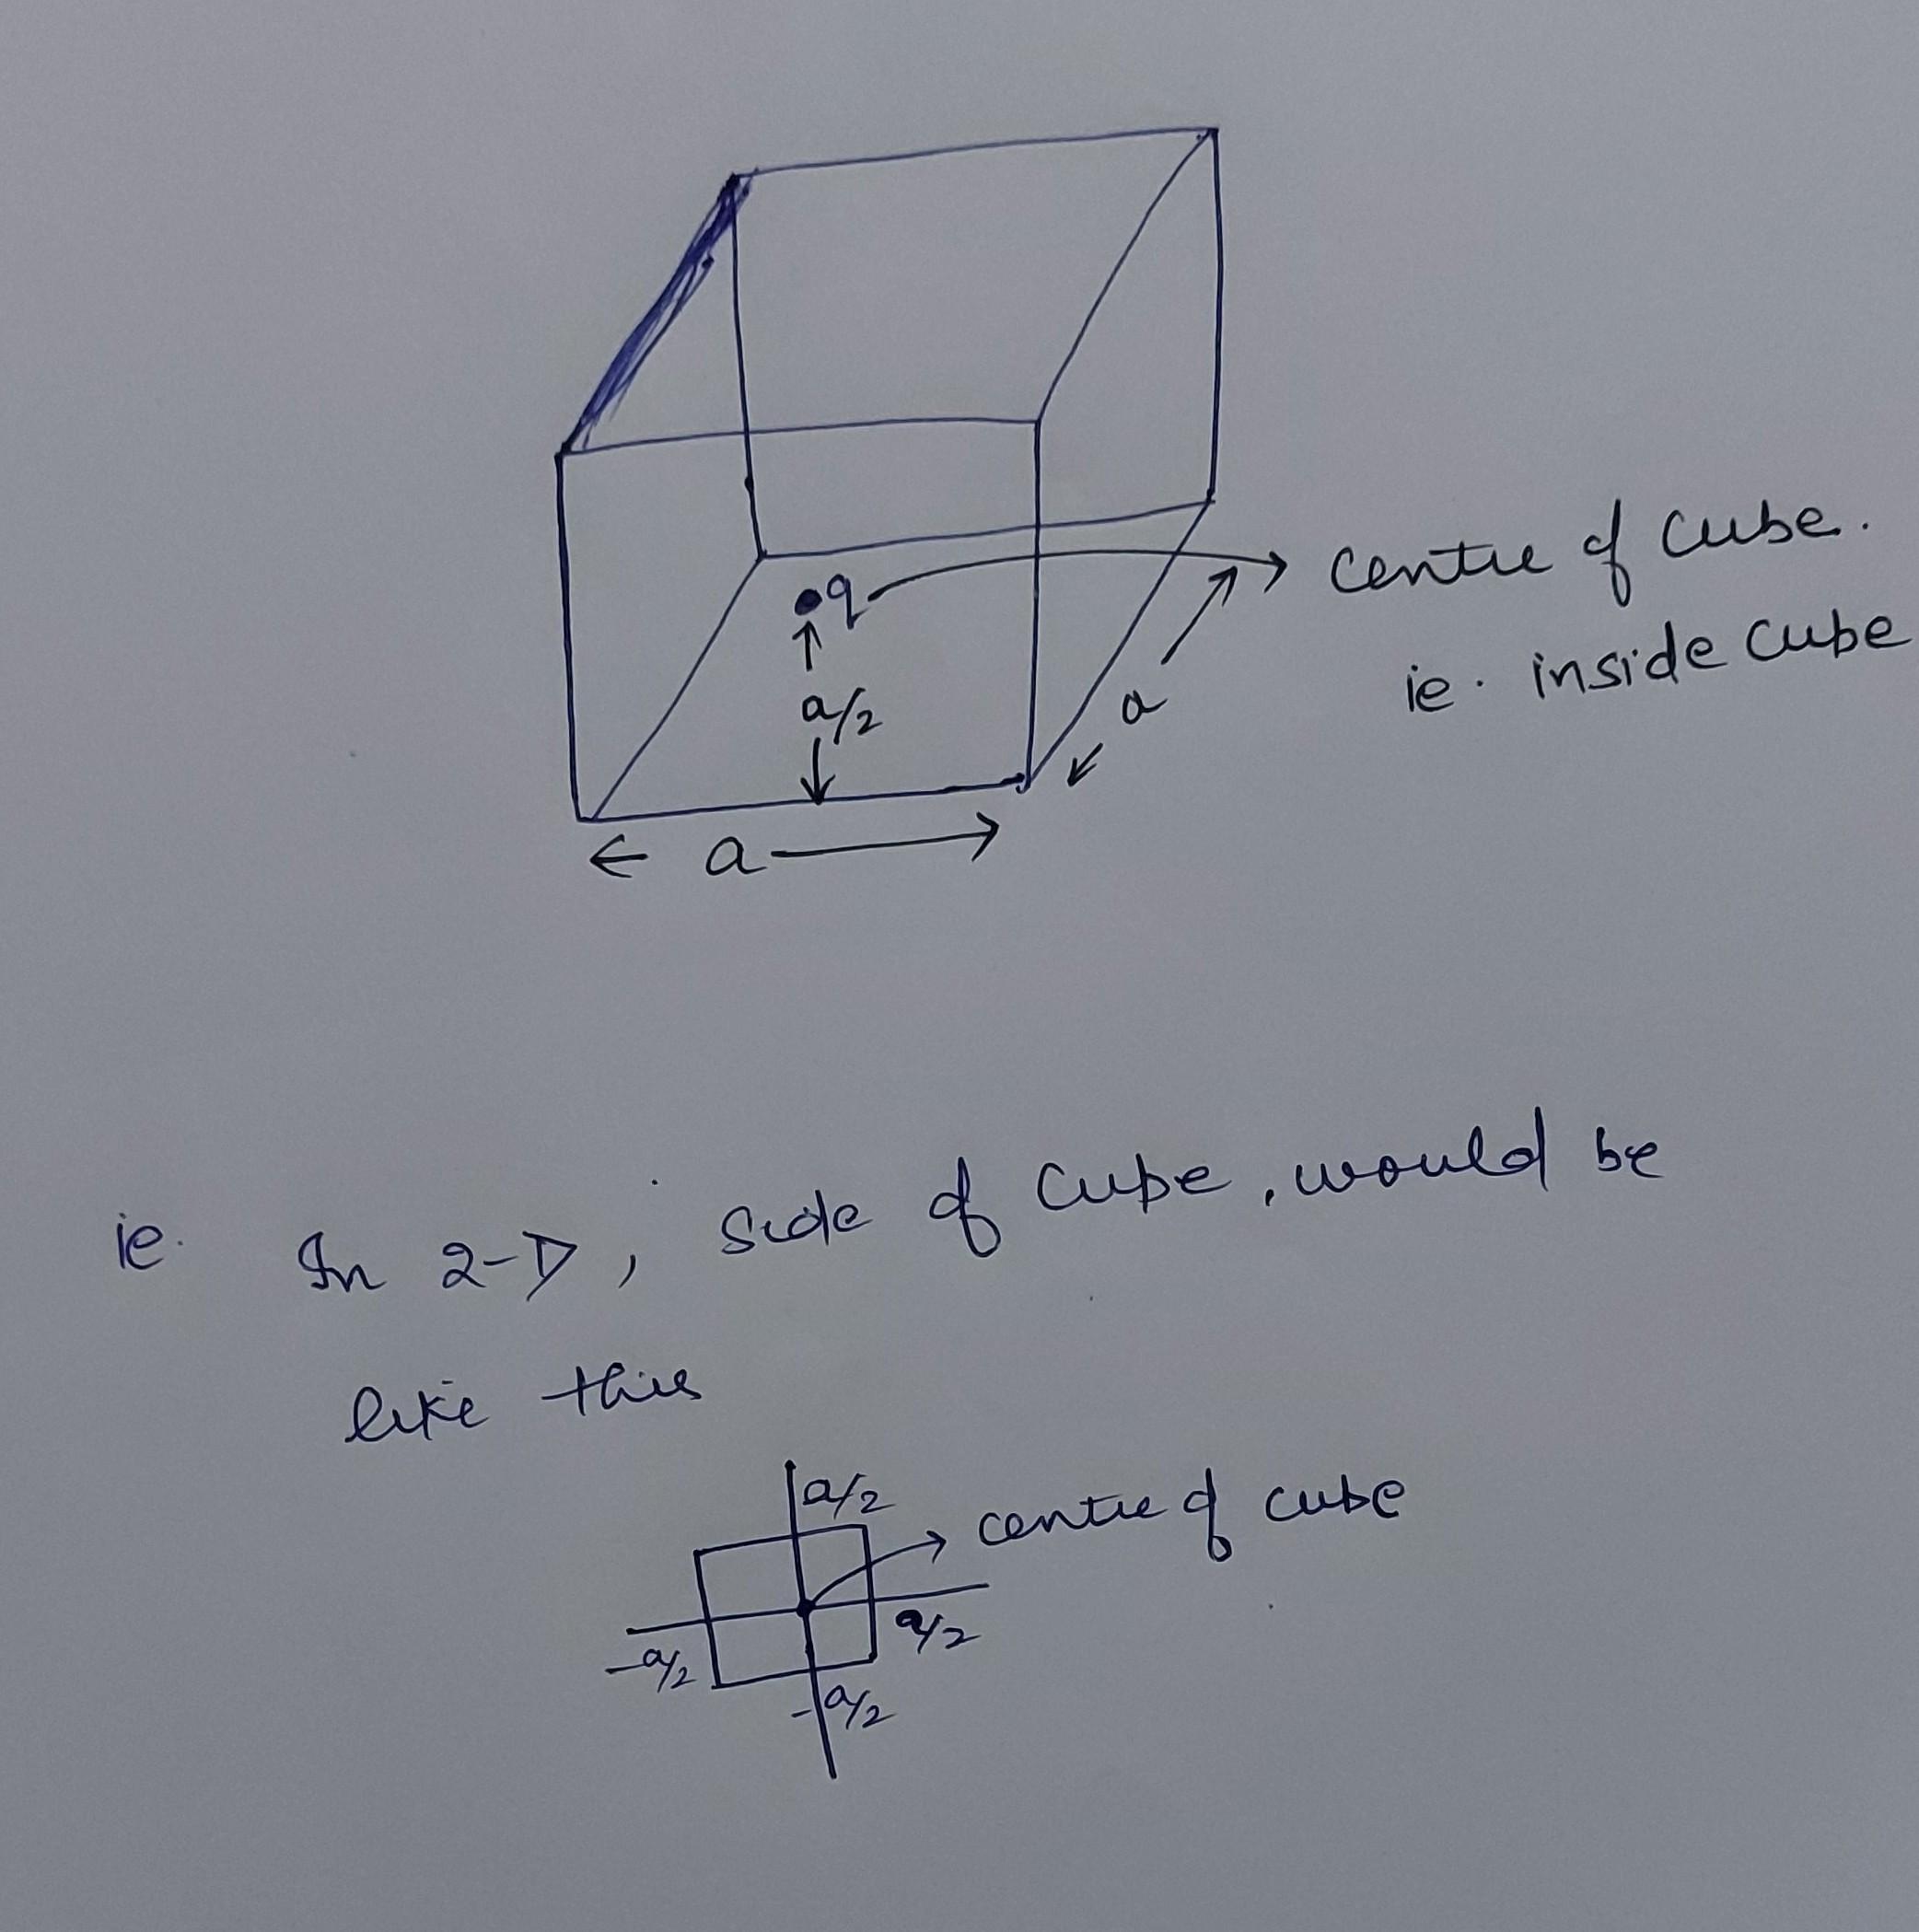 q
centre of cube.
ie. inside cube
a/2
a
a
ie. In 2-D, side of cube, would be
like this
a/2
centre of cube
-a/2
a/2
-a/2